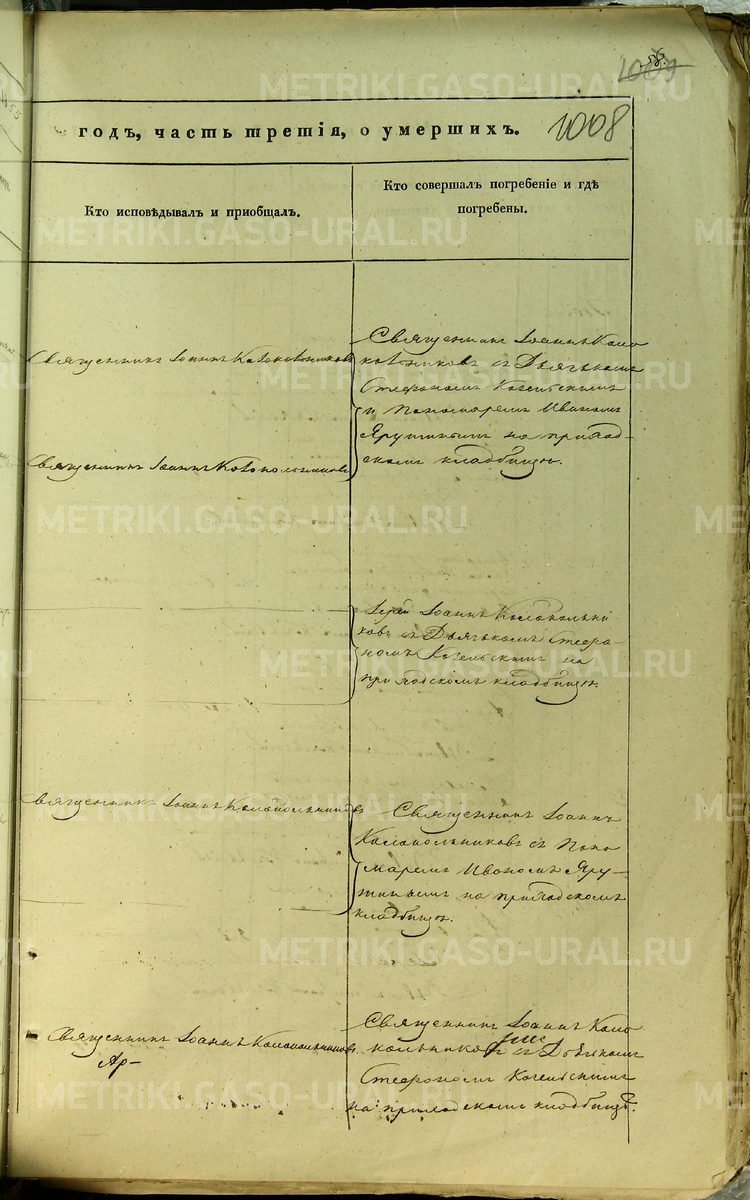 58.
1009
годъ, часть третія, о умершихъ.
1008
Кто исповѣдывалъ и пріобщалъ.
Кто совершалъ погребеніе и гдѣ
погребены.
Священникъ Іоаннъ Колокольниковъ
Священникъ Іоаннъ Коло
кольниковъ съ Дьячькомъ
Стефаномъ Козельскимъ
и Пономаремъ Иваномъ
Ярутинымъ на приход-
скомъ кладбищѣ.
Священникъ Іоаннъ Колокольниковъ
Іерей Іоаннъ Колокольни
ковъ съ Дьячькомъ Стефа-
номъ Козельскимъ на
приходскомъ кладбищѣ.
Священникъ Іоаннъ Колокольниковъ
Священникъ Іоаннъ
Колокольниковъ съ Поно
маремъ Иваномъ Яру-
тинымъ на приходскомъ
кладбищѣ.
Священникъ Іоаннъ Колокольниковъ
Священникъ Іоаннъ Коло
кольниковъ съ Дьячкомъ
Стефаномъ Козельскимъ
на приходскомъ кладбищѣ.
METRIKI.GASO-URAL.RU